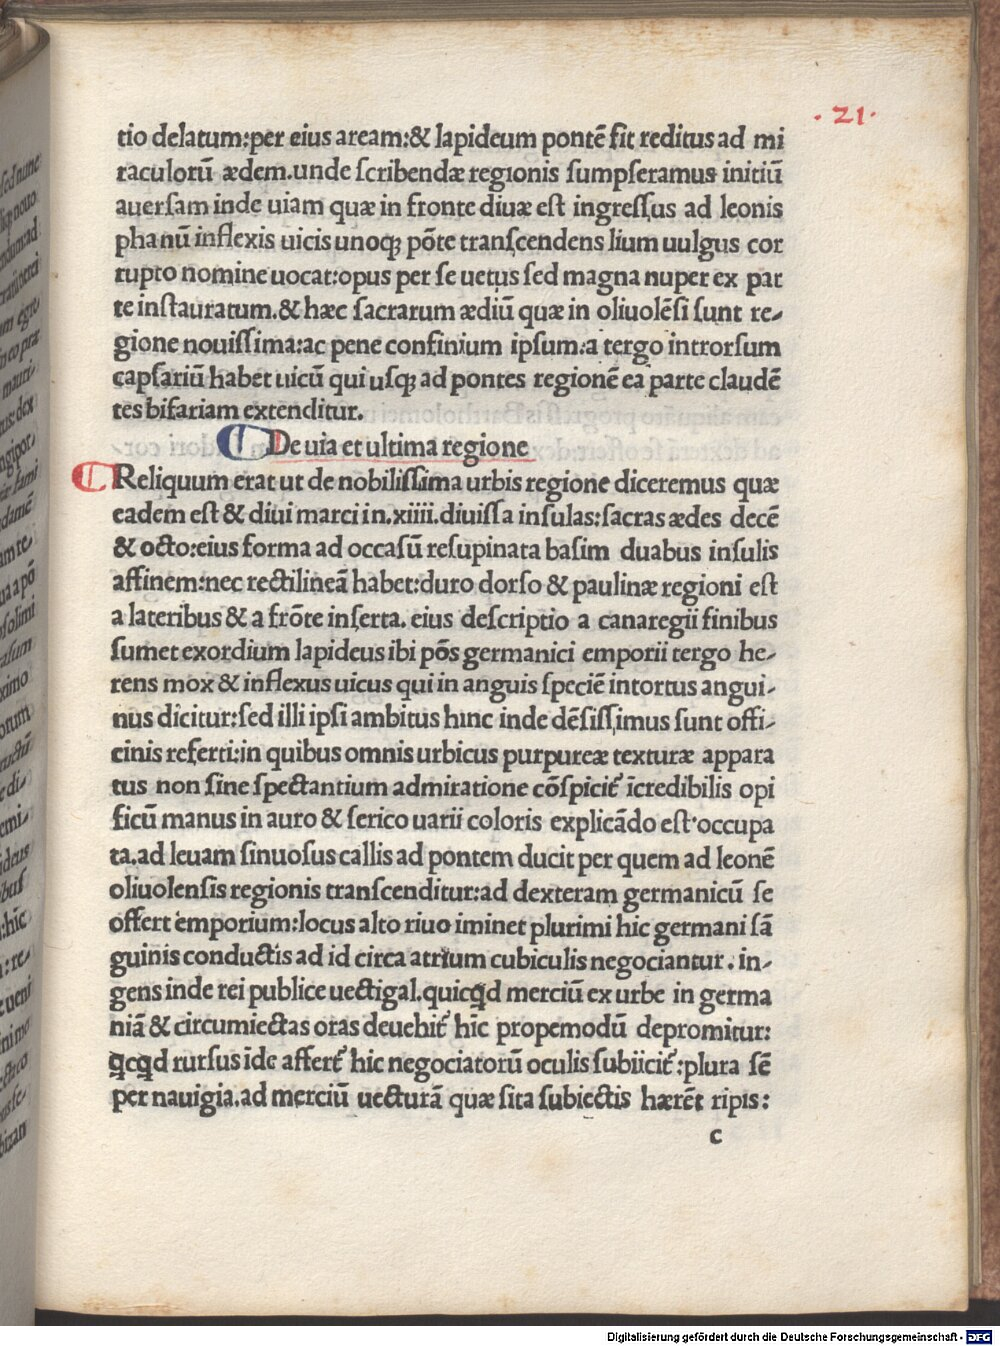 .21.
tio delatum:per eius aream:& lapideum pontē fit reditus ad mi
raculorū ædem.unde ſcribendæ regionis ſumpſeramus initiū
auerſam inde uiam quæ in fronte diuæ eſt ingreſſus ad leonis
phanū inflexis uicis unoqꝫ pōte tranſcendens lium uulgus cor
rupto nomine uocat:opus per ſe uetus ſed magna nuper ex par
te inſtauratum.& hæc ſacrarum ædiū quæ in oliuolēſi ſunt re-
gione nouiſſima:ac pene confinium ipſum:a tergo introrſum
capſariū habet uicū qui uſqꝫ ad pontes regionē ea parte claudē
tes bifariam extenditur.
De uia et ultima regione
Reliquum erat ut de nobiliſſima urbis regione diceremus quæ
eadem eſt & diui marci in.xiiii.diuiſſa inſulas:ſacras ædes decē
& octo:eius forma ad occaſū reſupinata baſim duabus inſulis
affinem:nec rectilineā habet:duro dorſo & paulinæ regioni eſt
a lateribus & a frōte inſerta. eius deſcriptio a canaregii finibus
ſumet exordium lapideus ibi pōs germanici emporii tergo he-
rens mox & inflexus uicus qui in anguis ſpeciē intortus angui-
nus dicitur:ſed illi ipſi ambitus hinc inde dēſiſſimus ſunt offi-
cinis referti:in quibus omnis urbicus purpureæ texturæ appara
tus non ſine ſpectantium admiratione cōſpicit᷑ īcredibilis opi
ficū manus in auro & ſerico uarii coloris explicādo eſt occupa
ta.ad leuam ſinuoſus callis ad pontem ducit per quem ad leonē
oliuolenſis regionis tranſcenditur:ad dexteram germanicū ſe
offert emporium:locus alto riuo iminet plurimi hic germani ſā
guinis conductis ad id circa atrium cubiculis negociantur. in-
gens inde rei publice uectigal.quicꝗd merciū ex urbe in germa
niā & circumiectas oras deuehit᷑ hīc propemodū depromitur:
ꝗcꝗd rurſus īde affert᷑ hic negociatorū oculis ſubiicit᷑:plura ſē
per nauigia.ad merciū uecturā quæ ſita ſubiectis hærēt ripis:
c
Digitalisierung gefördert durch die Deutsche Forschungsgemeinschaft - DFG